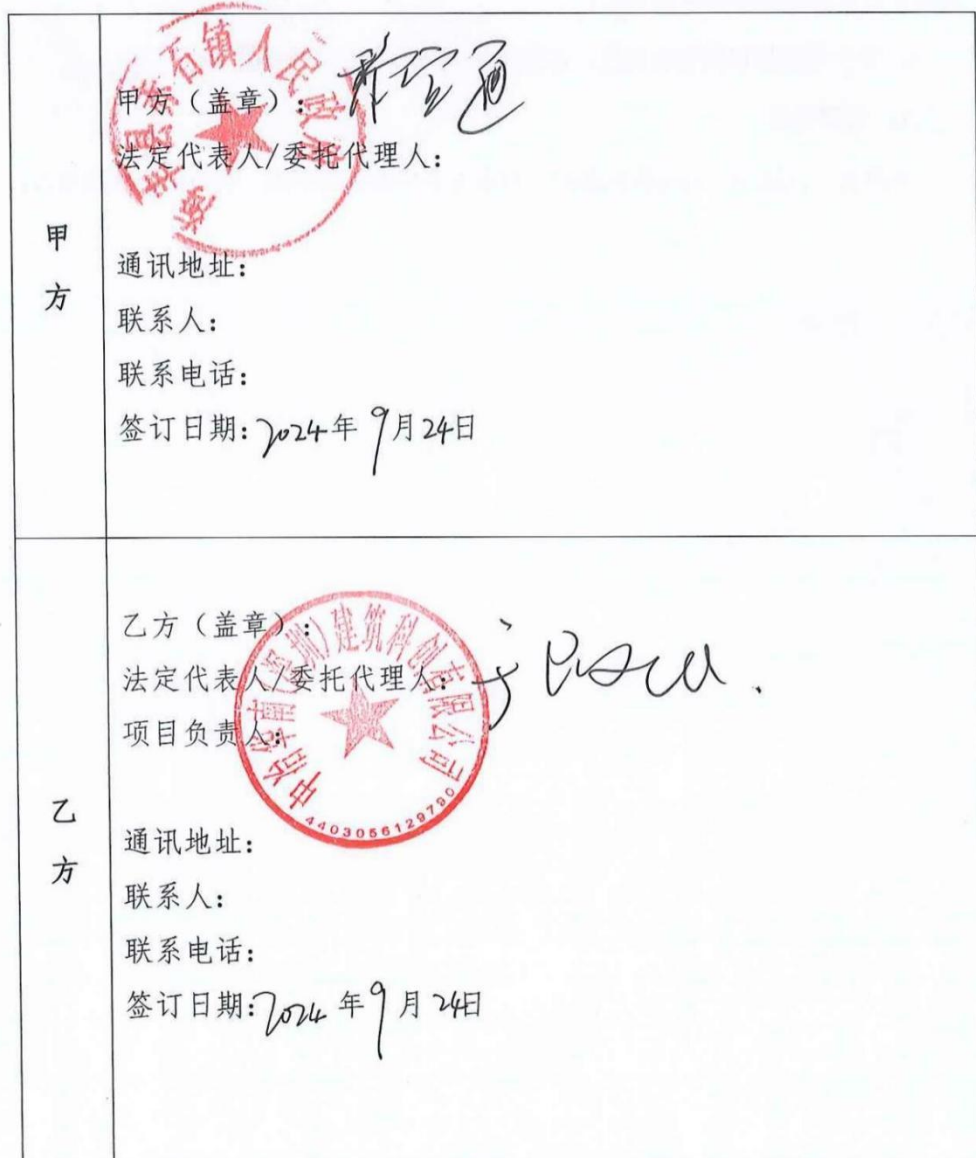 甲方
甲方（盖章）：
法定代表人/委托代理人：
通讯地址：
联系人：
联系电话：
签订日期：2024年9月24日
石镇人民政府
乙方
乙方（盖章）：
法定代表人/委托代理人：
项目负责人：
通讯地址：
联系人：
联系电话：
签订日期：2024年9月24日
华南（深圳）建筑科创有限公司
4403056129790